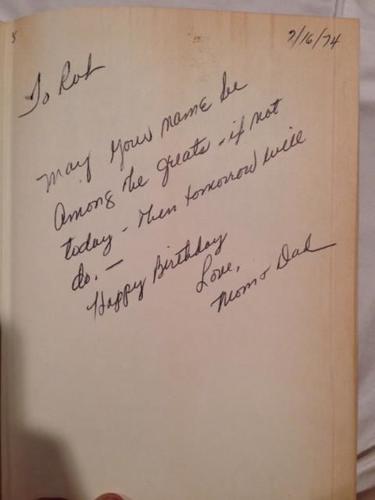 7/16/74
To Rob
May your name be
Among the greats - if not
today - then tomorrow will
do. —
Happy Birthday
Love,
Mom & Dad